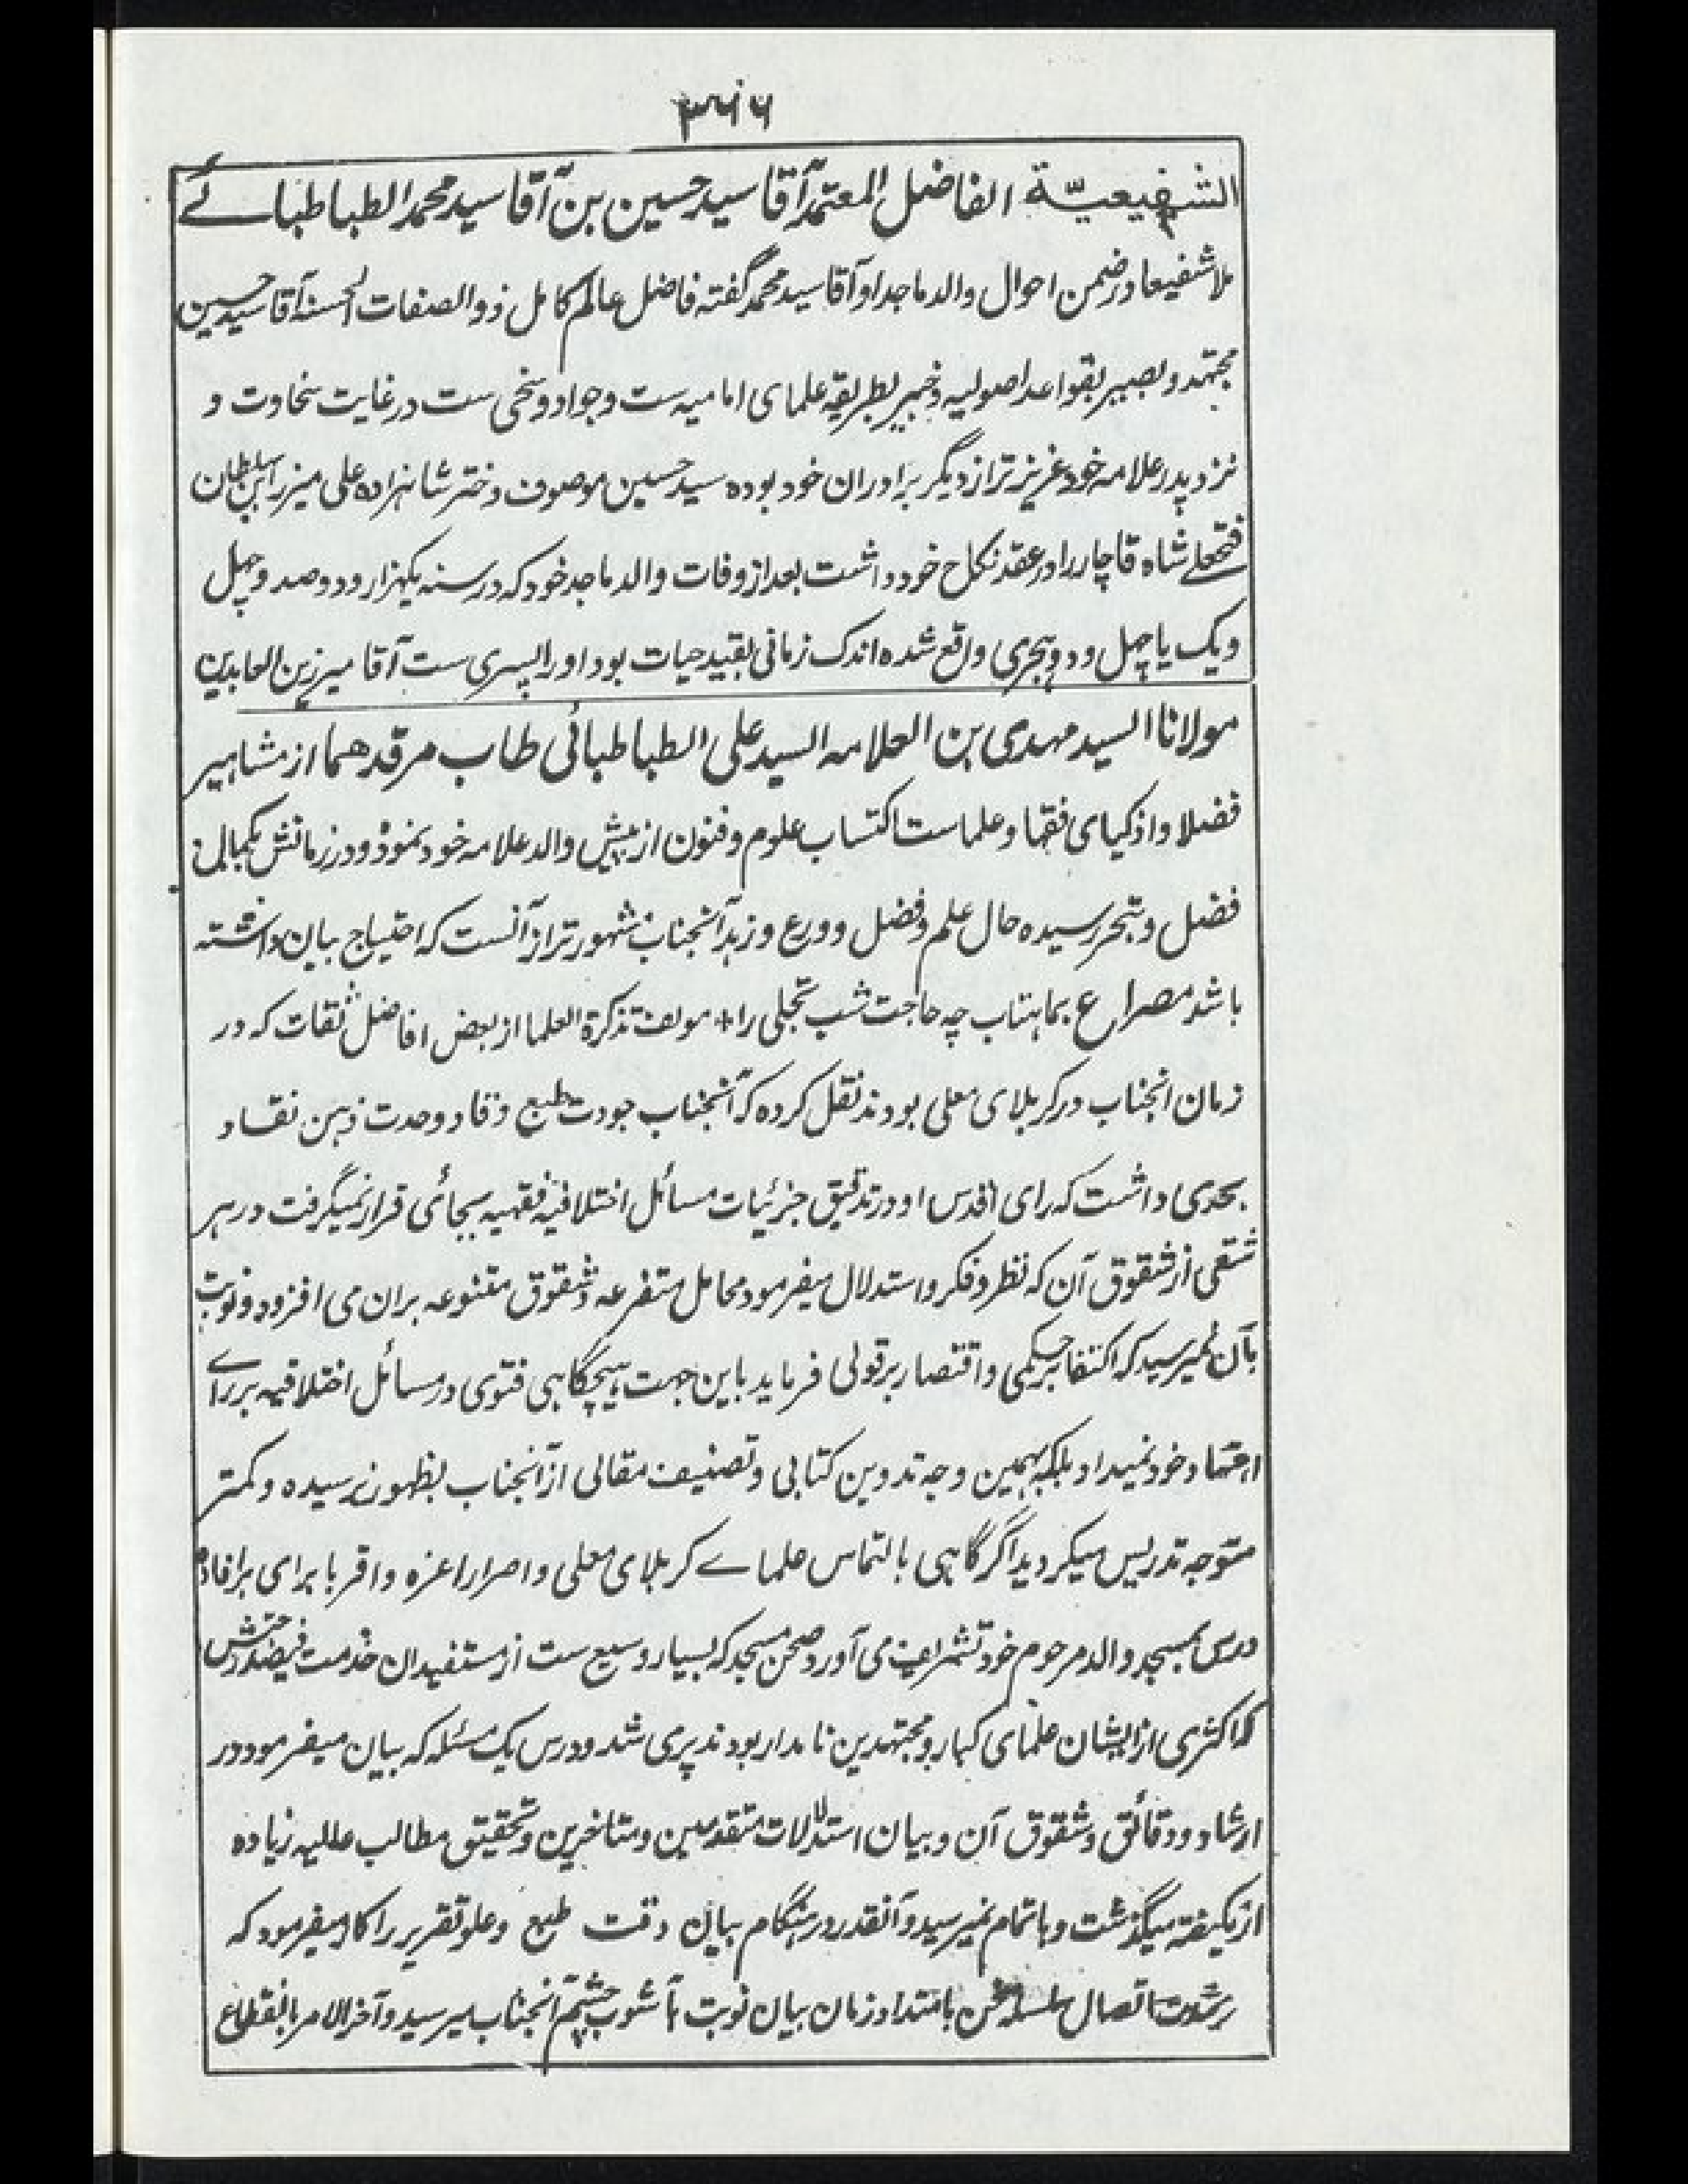 ۳۶۶
الشفیعیّة الفاضل المعتمد آقا سید حسین بن آقا سید محمد الطباطبائے
ملا شفیعا در ضمن احوال والد ماجد او آقا سید محمد گفته فاضل عالم کامل ذو الصفات الحسنه آقا سید حسین
مجتهد و بصیر بقواعد اصولیه و خبیر بطریقه علمای امامیه ست و جواد و سخی ست در غایت سخاوت و
نزد پدر علامه خود عزیز تر از دیگر برادران خود بوده سید حسین موصوف دختر شاهزاده علی میرزا ابن سلطان
فتحعلے شاه قاچار را در عقد نکاح خود داشت بعد از وفات والد ماجد خود که در سنه یکهزار و دو صد و چهل
و یک یا چهل و دو هجری واقع شده اندک زمانی بقید حیات بود او را پسری ست آقا میر زین العابدین
مولانا السید مهدی بن العلامه السید علی الطباطبائی طاب مرقدهما از مشاهیر
فضلا و اذکیای فقها و علماست اکتساب علوم و فنون از پیش والد علامه خود نموده و در زمانش بکمال
فضل و تبحر رسیده حال علم و فضل و ورع و زهد آنجناب مشهور تر از آنست که احتیاج بیان داشته
باشد مصراع بماهتاب چه حاجت شب تجلی را + مولف تذکرة العلما از بعض افاضل ثقات که در
زمان انجناب در کربلای معلی بودند نقل کرده که آنجناب جودت طبع وقاد و حدت ذهن نقاد
بحدی داشت که رای اقدس او در تدقیق جزئیات مسائل اختلافیه فقهیه بجائی قرار نمیگرفت در هر
شقی از شقوق آن که نظر و فکر و استدلال میفرمود محامل متفرعه و شقوق متنوعه بران می افزود و نوبت
بآن نمیرسید که اکتفا بر حکمی و اقتصار بر قولی فرماید باین جهت هیچگاهی فتوی در مسائل اختلافیه بر راے
اعتماد خود نمیداد بلکه بهمین وجه تدوین کتابی و تصنیف مقالی از آنجناب بظهور نرسیده و کمتر
متوجه تدریس میگردید اگر گاهی بالتماس علماے کربلای معلی و اصرار اعزه و اقربا برای افاده
درس بمسجد والد مرحوم خود تشریف می آورد صحن مسجد که بسیار وسیع ست از مستفیدان خدمت
که اکثری از ایشان علمای کبار و مجتهدین نامدار بودند پر می شد و درس یک مسئله که بیان میفرمود در
ارشاد و دقائق و شقوق آن و بیان استدلالات متقدمین و متاخرین و تحقیق مطالب عالیه زیاده
از یکهفته میگذشت و باتمام نمیرسید و آنقدر در هنگام بیان دقت طبع و علو تقریر را کار میفرمود که
اتصال سلسله سخن بامتداد زمان بیان نوبت بآشوب چشم آنجناب میرسید و آخر الامر بانقطاع